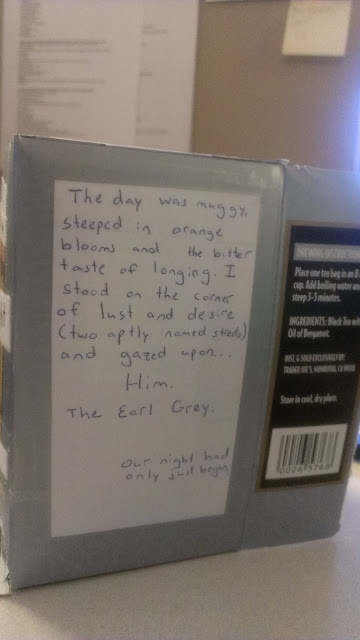 The day was muggy,
steeped in orange
blooms and the bitter
taste of longing. I
stood on the corner
of lust and desire
(two aptly named streets)
and gazed upon...
Him.
The Earl Grey.
Our night had
only just begun
BREWING INSTRUCTIONS
Place one tea bag in an 8
cup. Add boiling water and
steep 3-5 minutes.
INGREDIENTS: Black Tea wi
Oil of Bergamot.
DIST. & SOLD EXCLUSIVELY BY:
TRADER JOE'S, MONROVIA, CA 91016
Store in cool, dry place.